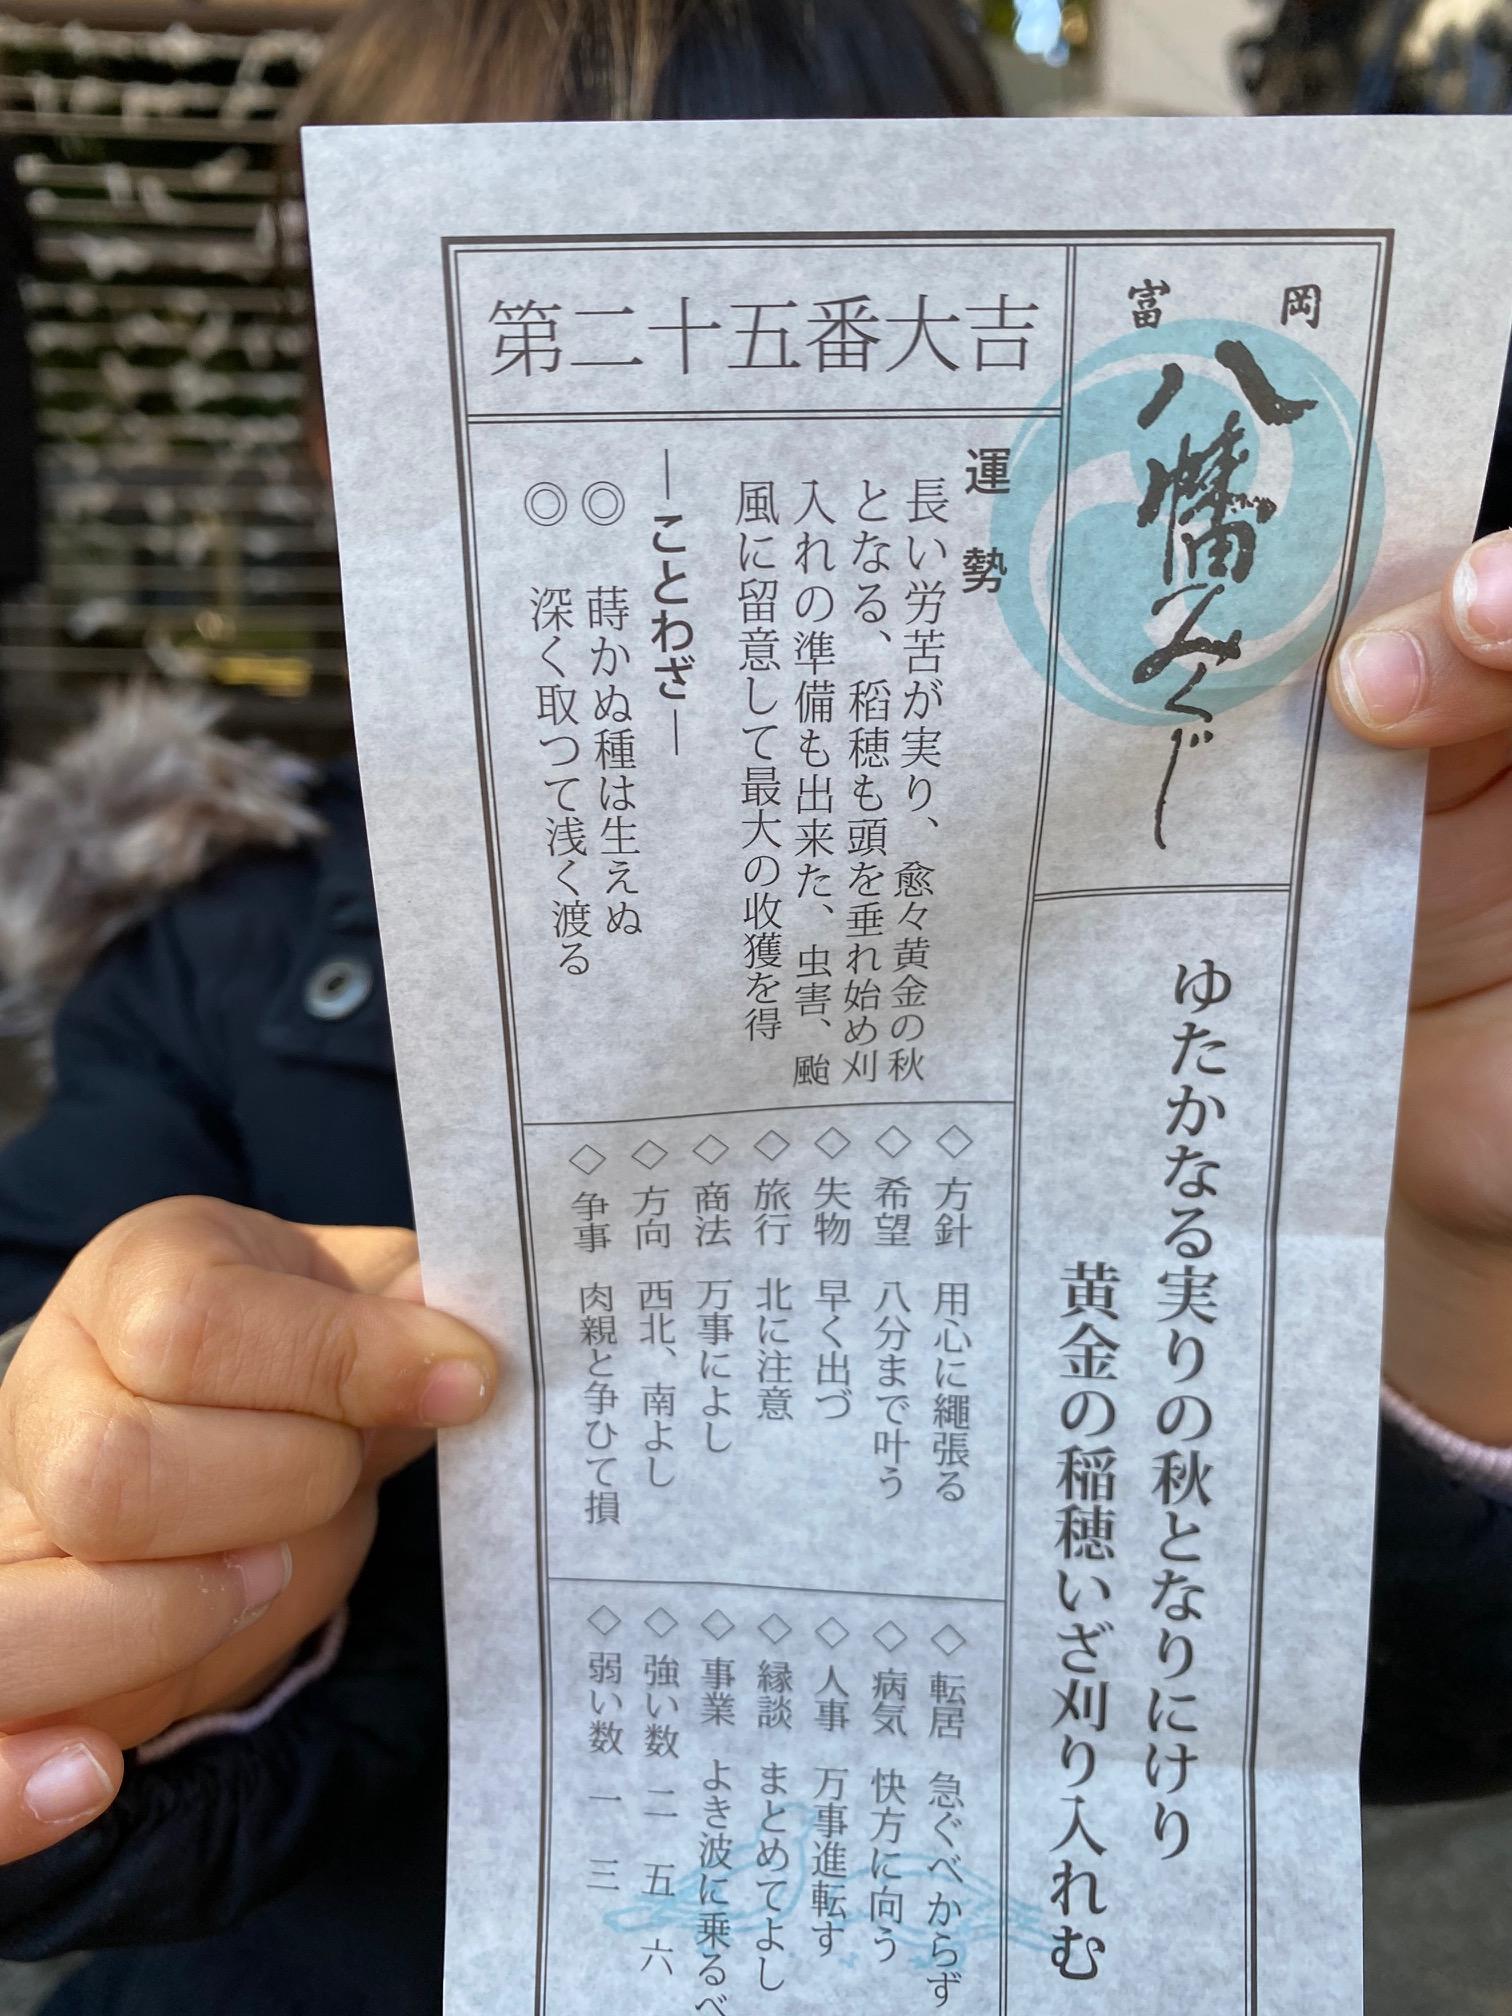 富岡
八幡みくじ
ゆたかなる実りの秋となりにけり
黄金の稲穂いざ刈り入れむ
第二十五番大吉
運勢
長い労苦が実り、愈々黄金の秋
となる、稲穂も頭を垂れ始め刈
入れの準備も出来た、虫害、颱
風に留意して最大の収獲を得
―ことわざ―
◎ 蒔かぬ種は生えぬ
◎ 深く取つて浅く渡る
◇ 方針 用心に繩張る
◇ 希望 八分まで叶う
◇ 失物 早く出づ
◇ 旅行 北に注意
◇ 商法 万事によし
◇ 方向 西北、南よし
◇ 争事 肉親と争ひて損
◇ 転居 急ぐべからず
◇ 病気 快方に向う
◇ 人事 万事進転す
◇ 縁談 まとめてよし
◇ 事業 よき波に乗るべ
◇ 強い数 二 五 六
◇ 弱い数 一 三